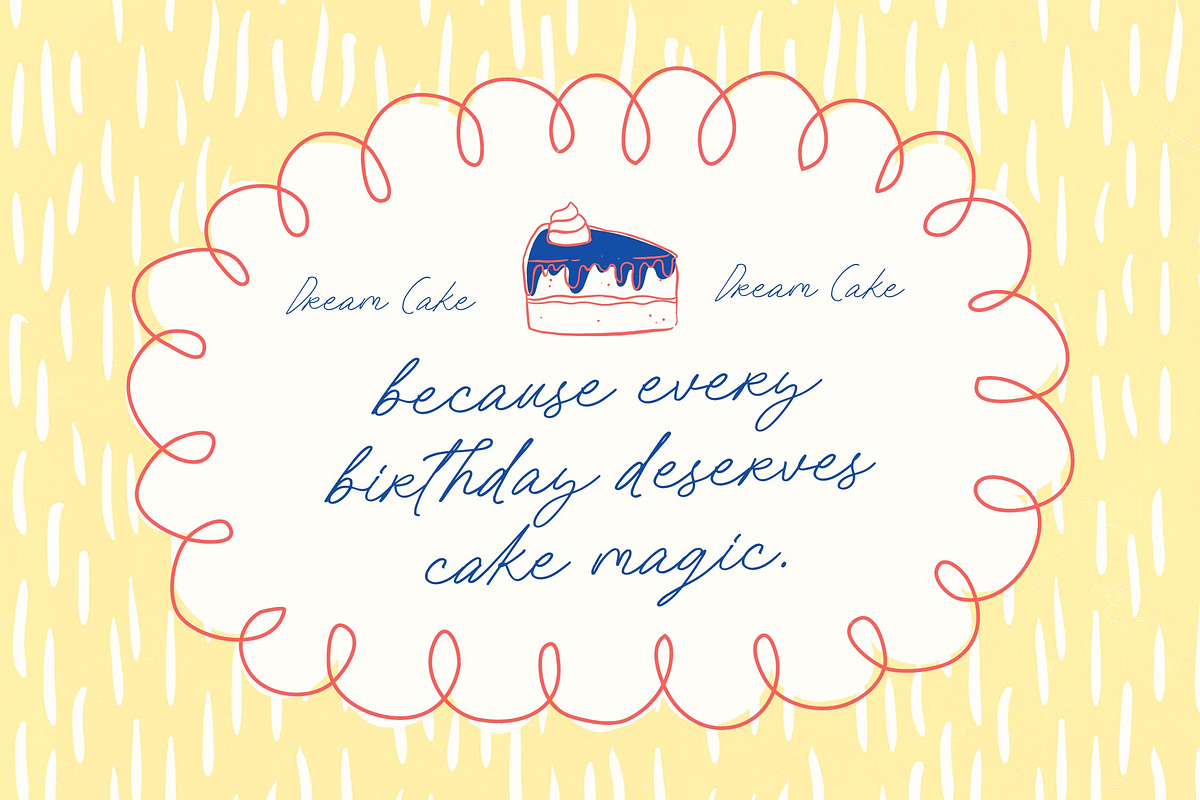 Dream Cake Dream Cake
because every
birthday deserves
cake magic.